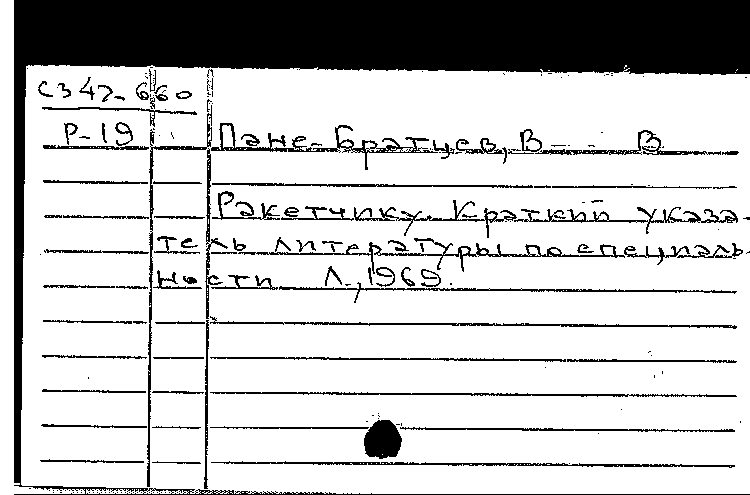 С347-660
Р-19 Пане-Братцев, В-- В
Ракетчику. Краткий указа-
тель литературы по специаль-
ности Л., 1969.